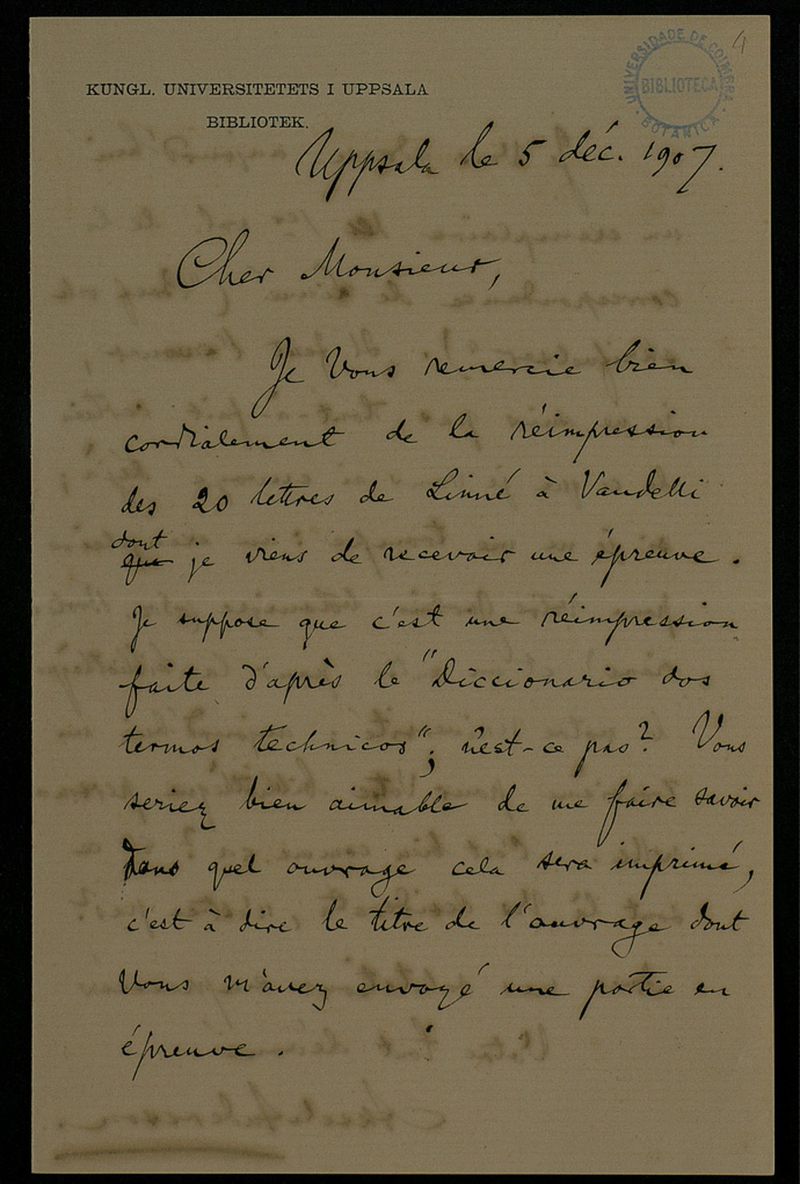 4
UNIVERSIDADE DE COIMBRA
BIBLIOTECA
BOTANICA
KUNGL. UNIVERSITETETS I UPPSALA
BIBLIOTEK.
Uppsala le 5 déc. 1907.
Cher Monsieur,
Je Vous remercie bien
cordialement de la réimpression
des 20 lettres de Linné à Vandelli
dont
que je viens de recevoir une épreuve.
Je suppose que c'est une réimpression
faite d'après le "Diccionario dos
termos technicos"; n'est-ce pas? Vous
seriez bien aimable de me faire savoir
dans quel ouvrage cela sera imprimé,
c'est à dire le titre de l'ouvrage dont
Vous m'avez envoyé une partie en
épreuve.